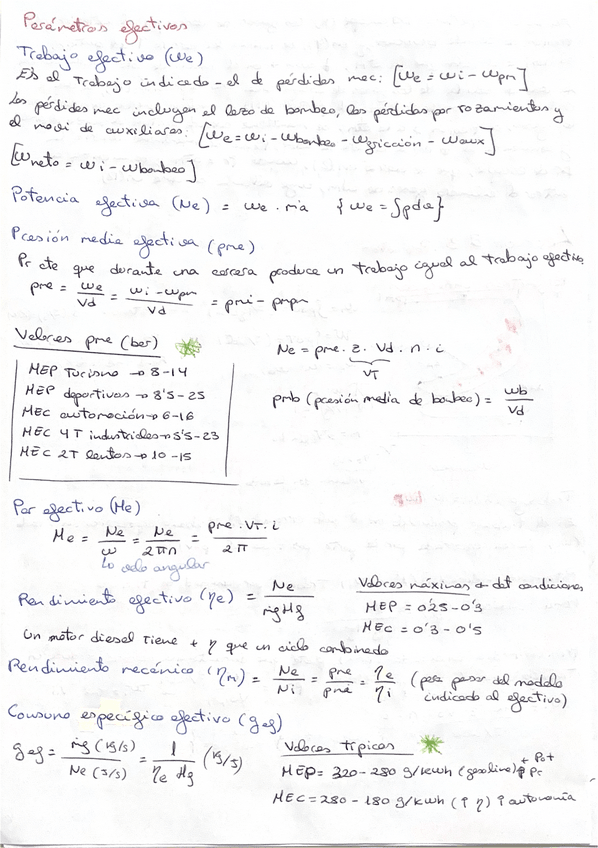 Parámetros efectivos
Trabajo efectivo (We)
Es el Trabajo indicado - el de pérdidas mec: [We = Wi - Wpm]
Las pérdidas mec incluyen el lazo de bombeo, las pérdidas por rozamientos y
el movi de auxiliares: [We = Wi - Wbombeo - Wfricción - Waux]
[Wneto = Wi - Wbombeo]
Potencia efectiva (Ne) = We · ṁa { We = ∫pdv }
Presión media efectiva (pme)
Pr cte que durante una carrera produce un Trabajo igual al trabajo efectivo.
pme = We/Vd = (Wi - Wpm)/Vd = pmi - pmpm
Valores pme (bar)
MEP Turismo → 8-14
MEP deportivos → 8'5-25
MEC automoción → 6-16
MEC 4T industriales → 5'5-23
MEC 2T lentos → 10-15
Ne = pme · z · Vd · n · i
VT
pmb (presión media de bombeo) = Wb/Vd
Par efectivo (Me)
Me = Ne/ω = Ne/2πn = (pme · VT · i)/2π
↳ velo angular
Rendimiento efectivo (ηe) = Ne/(ṁf Hf)
Valores máximos en det condiciones
MEP = 0'25-0'3
MEC = 0'3-0'5
Un motor diesel tiene + η que un ciclo combinado
Rendimiento mecánico (ηm) = Ne/Ni = pme/pmi = ηe/ηi (para pasar del modelo
indicado al efectivo)
Consumo específico efectivo (gef)
gef = ṁf (kg/s)/Ne (J/s) = 1/(ηe Hf) (kg/J)
Valores típicos
MEP = 320-280 g/kwh (gasolina) + Pot
MEC = 280-180 g/kwh (↑ η) ↑ autonomía